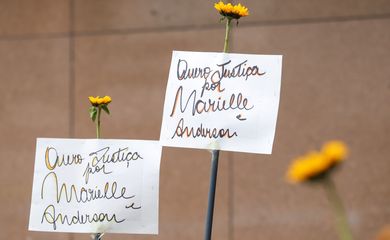 Quero Justiça
por
Marielle
Anderson e
Quero Justiça
por
Marielle
Anderson e